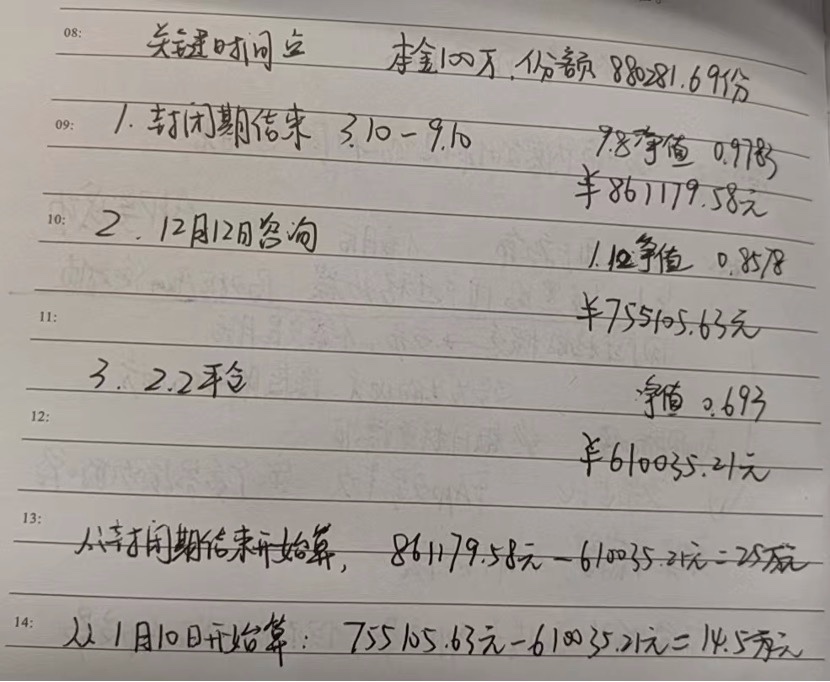 08: 关键时间点 本金100万,份额 880281.69份
09: 1. 封闭期结束 3.10-9.10 9.8净值 0.9783
¥861179.58元
10: 2. 12月12日咨询 1.12净值 0.8578
¥755105.63元
11:
3. 2.2平仓 净值 0.693
12:
¥610035.21元
13: 从封闭期结束开始算, 861179.58元-610035.21元=25万元
14: 从1月10日开始算: 755105.63元-610035.21元=14.5万元